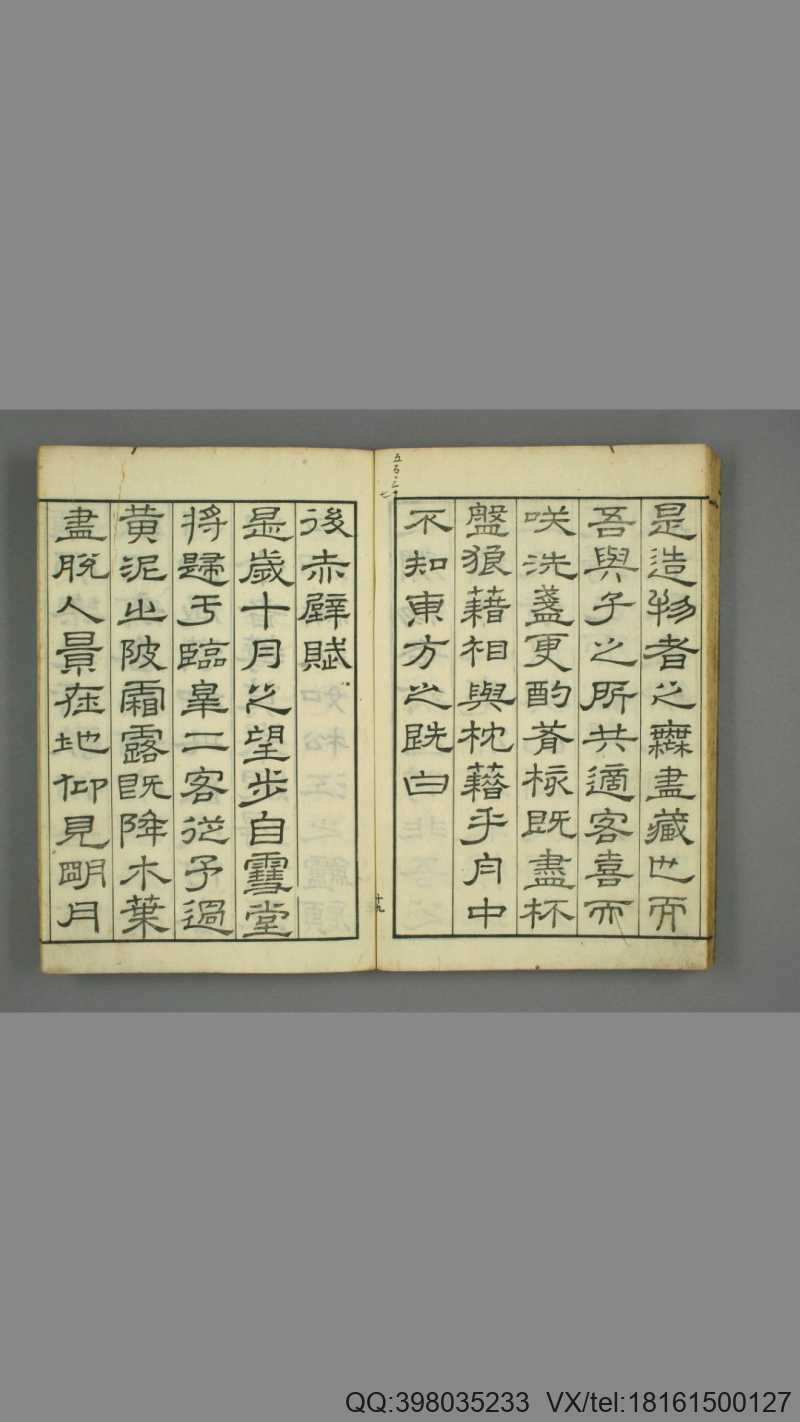 是造物者之無盡藏也而
吾與子之所共適客喜而
咲洗盞更酌肴核既盡杯
盤狼藉相與枕藉乎舟中
不知東方之既白
十九
後赤壁賦
是歲十月之望步自雪堂
將歸于臨皋二客從予過
黃泥之陂霜露既降木葉
盡脫人景在地仰見明月
QQ:398035233 VX/tel:18161500127